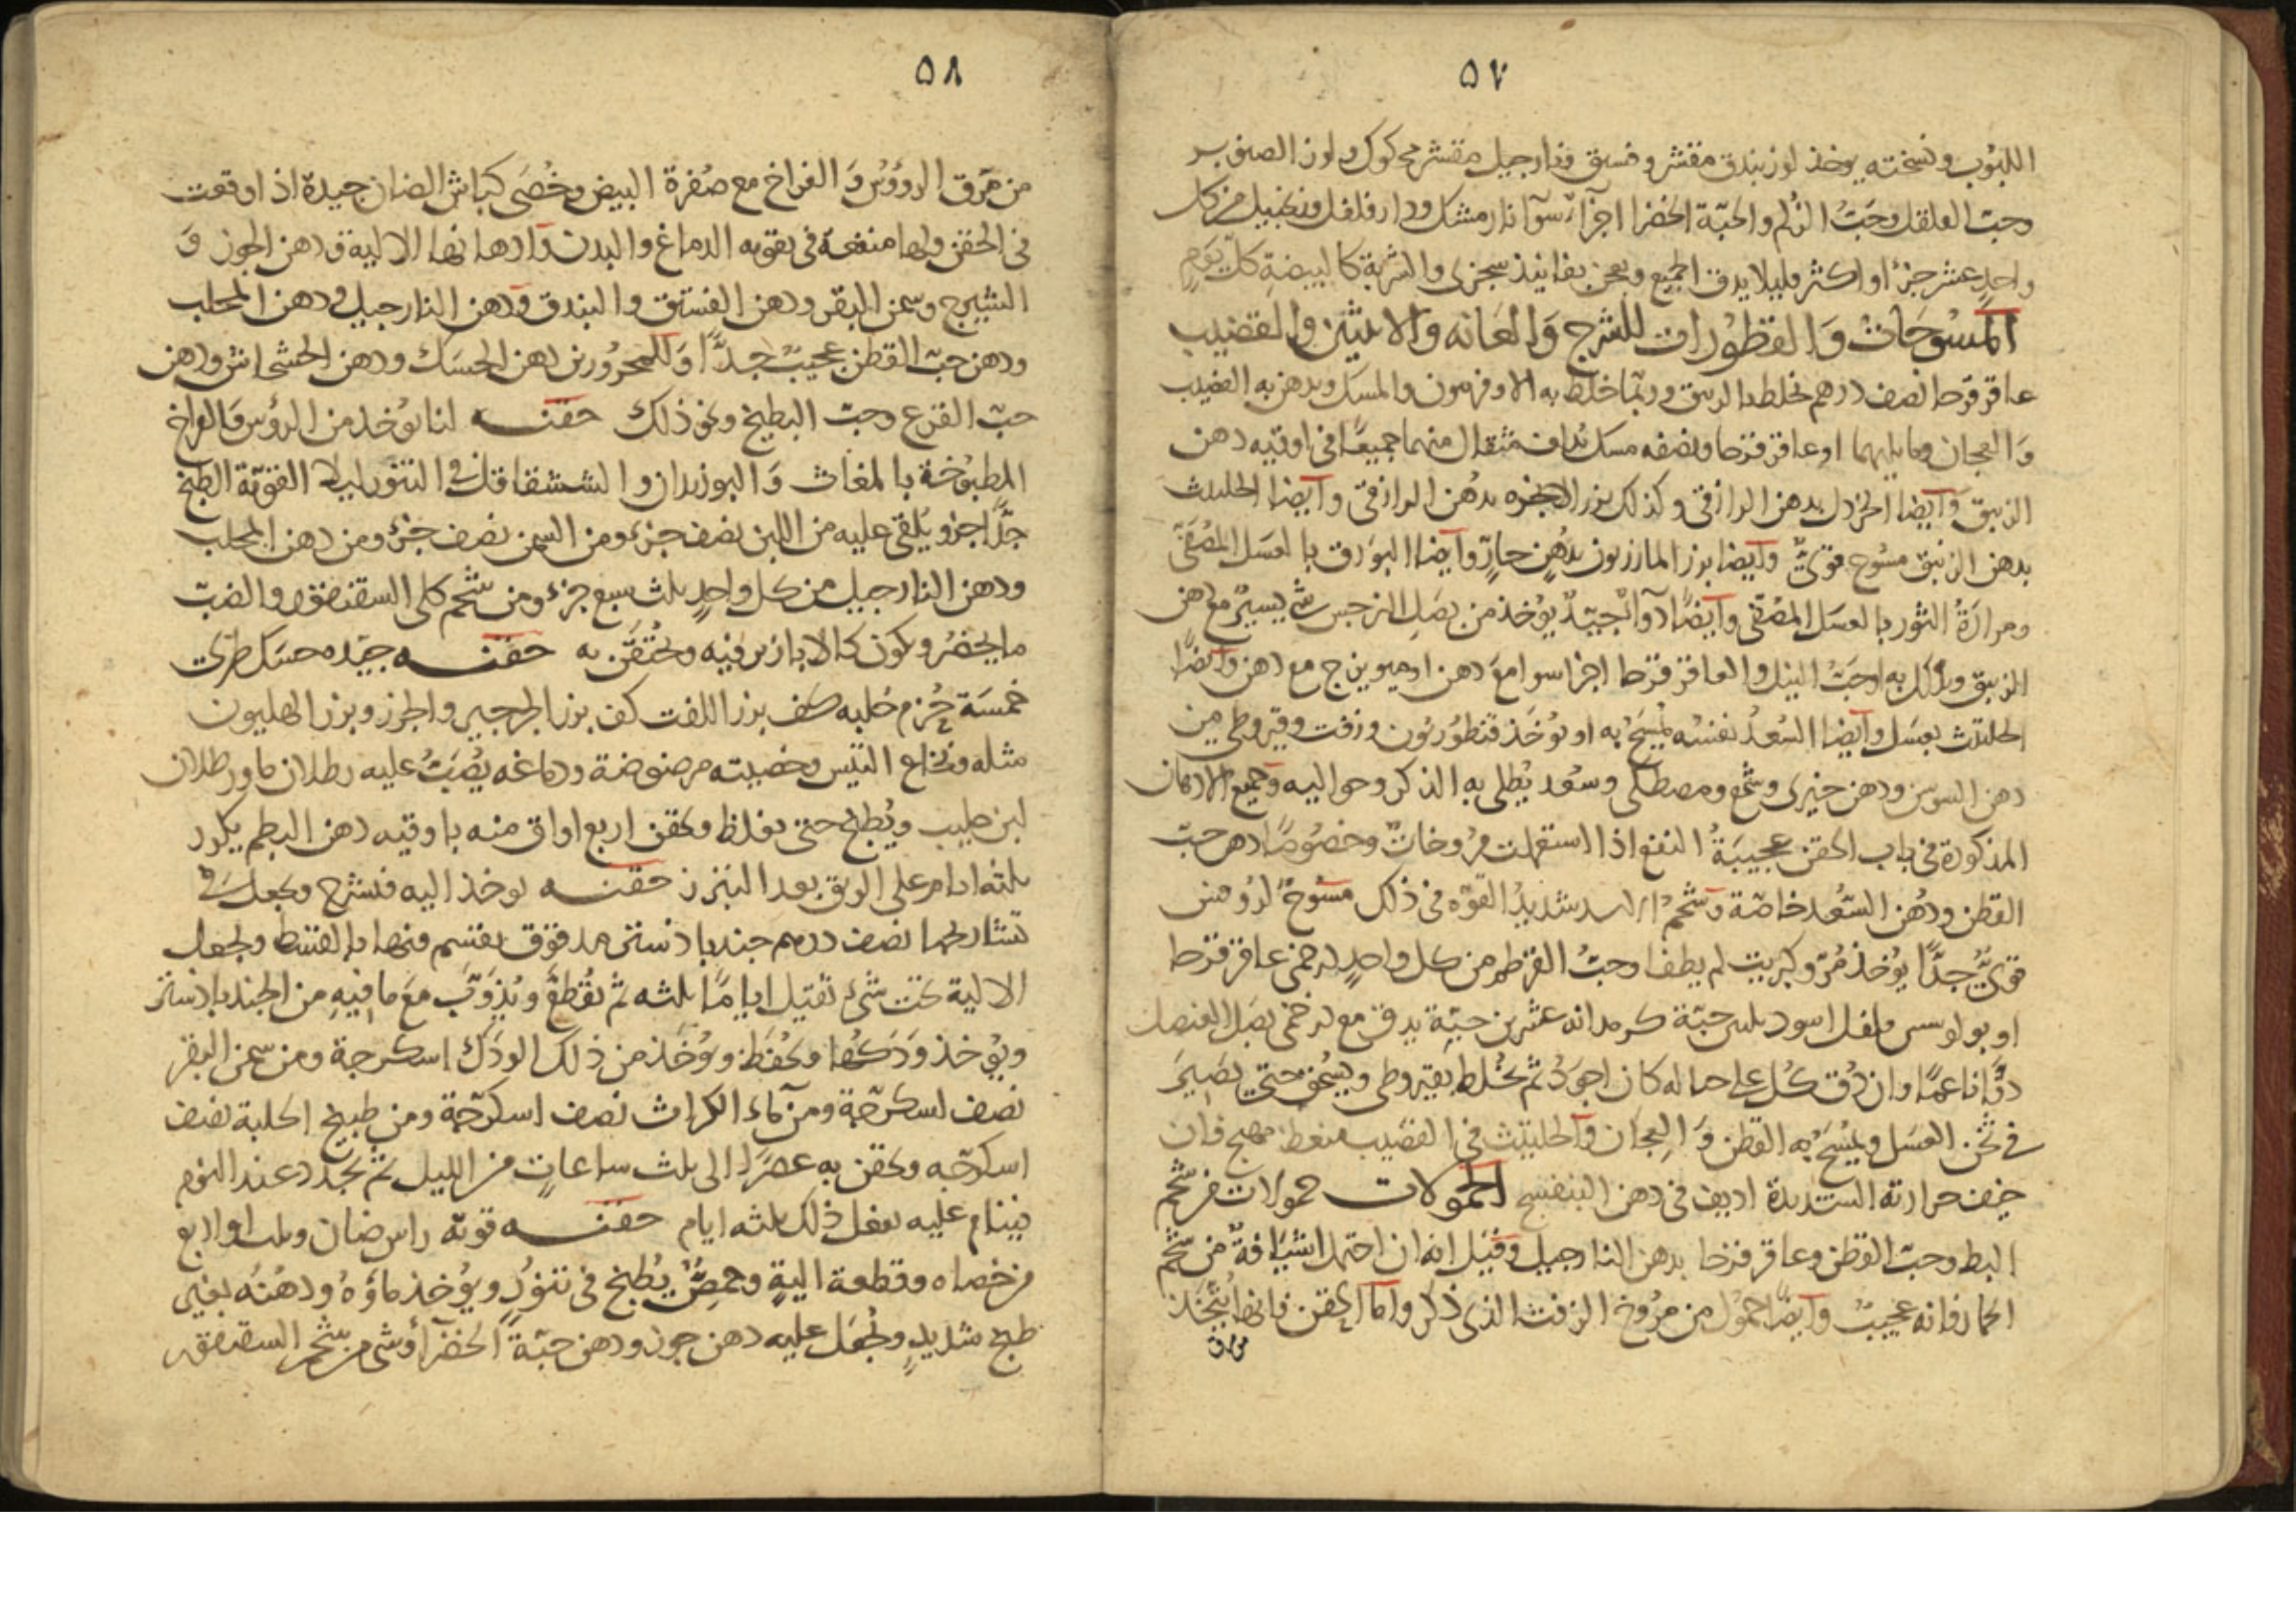 ٥٧
اللبوب ونسخته يوخذ لوز بندق مقشر وفستق ونارجيل مقشر محكوك ولوز الصنوبر
وحب الفلفل وحبّ الزلم والحبة الخضرا اجزآء سوآ نارمشك ودارفلفل وزنجبيل من كل
واحد عشر جزء او اكثر قليلا يدق الجميع ويعجن بفانيذ سجزى والشربة كالبيضة كل يوم
المسوحات والقطورات للشرج والعانه والانثيين والقضيب
عاقرقرحا نصف درهم يخلط بالزنبق وربما خلط به الاوفربيون والمسك ويدهن به القضيب
والعجان وما يليهما او عاقرقرحا ونصفه مسك يداف مثقال منهما جميعا فى اوقيه دهن
الزنبق وآيضا الخردل بدهن الرازقى وكذلك بزر الانجره بدهن الرازقى وآيضا الحلتيت
بدهن الزنبق مسوح قوىّ وآيضا بزر المازريون بدهن حارّ وآيضا البورق بالعسل المصفّى
ومرارة الثور بالعسل المصفى وآيضا دوآء جيّد يوخذ من بصل النرجس شى يسير مع دهن
الزنبق ويدلك به او حبّ البنك والعاقرقرحا اجزا سوا مع دهن او ميويزج مع دهن وآيضا
الحلتيت بعسل وآيضا السعد نفسه يمسح به او يوخذ قنطوريون وزفت وقيروطى من
دهن السوسن ودهن خيرى وشمع ومصطكى وسعد يطلى به الذكر وحواليه وجميع الادهان
المذكورة فى باب الحقن عجيبة النفع اذا استعملت مروخات وخصوصا دهن حبّ
القطن ودهن السعد خاصّة وشحم الاسد شديد القوه فى ذلك مسوح لروفس
قوىّ جدّا يوخذ مرّ وكبريت لم يطفا وحبّ القرطم من كل واحد درخمى عاقرقرحا
اوبولوسين فلفل اسود ثلثين حبّة كرمدانه عشرين حبّة يدق مع درخمى بصل العنصل
دقّا ناعما وان دق كل على حياله كان اجود ثم يخلط بقيروطى ويسحق حتى يصير
فى ثخن العسل ويمسح به القطن والعجان وآلحلتيت فى القضيب منعظ مهيج فان
خيف حرارته الشديدة اديف فى دهن البنفسج الحمولات حمولات من شحم
البط وحبّ القطن وعاقرقرحا بدهن النارجيل وقيل انه ان احتمل شيافة من شحم
الحمار فانه عجيب وآيضا حمول من مروخ الزفت الذى ذكر وآما الحقن فانها يتّخذ
من مرق
٥٨
من مرق الرؤوس والفراخ مع صفرة البيض وخصى كباش الضان جيدة اذا وقعت
فى الحقن ولها منفعة فى تقويه الدماغ والبدن وآدهانها الالية ودهن الجوز و
الشيرج وسمن البقر ودهن الفستق والبندق ودهن النارجيل ودهن المحلب
ودهن حبّ القطن عجيب جدّا وللمحرورين دهن الحسك ودهن الخشخاش ودهن
حبّ القرع وحبّ البطيخ ونحو ذلك حقنه لنا يوخذ من الرؤس والفراخ
المطبوخة بالمغاث والبوزيدان والششقاقل فى التنور ليلا القويّة الطبخ
جدّا جزو يلقى عليه من اللبن نصف جزء ومن السمن نصف جزء ومن دهن المحلب
ودهن النارجيل من كل واحد ثلث سبع جزء ومن شحم كلى السقنقور والضبّ
ما يحضر ويكون كالابازير فيه ويحتقن به حقنه جيّده حسك طرىّ
خمسة حزم حلبه كف بزر اللفت كف بزر الجرجير والجزر وبزر الهليون
مثله ونخاع التيس وخصيته مرضوضة ودماغه يصبّ عليه رطلان ما ورطلان
لبن حليب ويطبخ حتى يغلظ ويحقن اربع اواق منه باوقيه دهن البطم يكرر
ثلثه ايام على الريق بعد التبرز حقنه يوخذ اليه فتشرح ويجعل فى
تشاريحها نصف درهم جندبادستر مدقوق يقسم فيها بالقسط ويجعل
الالية تحت شىء ثقيل اياما ثلثه ثم تقطع ويذوّب مع ما فيه من الجندبادستر
ويوخذ ودكها ويحفظ ويوخذ من ذلك الودك اسكرجة ومن سمن البقر
نصف اسكرجّة ومن مآء الكراث نصف اسكرجّة ومن طبيخ الحلبة نصف
اسكرجّه ويحقن به عصرا الى ثلث ساعات من الليل ثم يجدد عند النوم
فينام عليه يفعل ذلك ثلثه ايام حقنه قويّة راس ضان وثلث او اربع
من خصاه وقطعة الية وحمص يطبخ فى تنور ويوخذ ماؤه ودهنه بغير
طبخ شديد ويجعل عليه دهن جوز ودهن حبّة الخضرآء وشى من شحم السقنقور